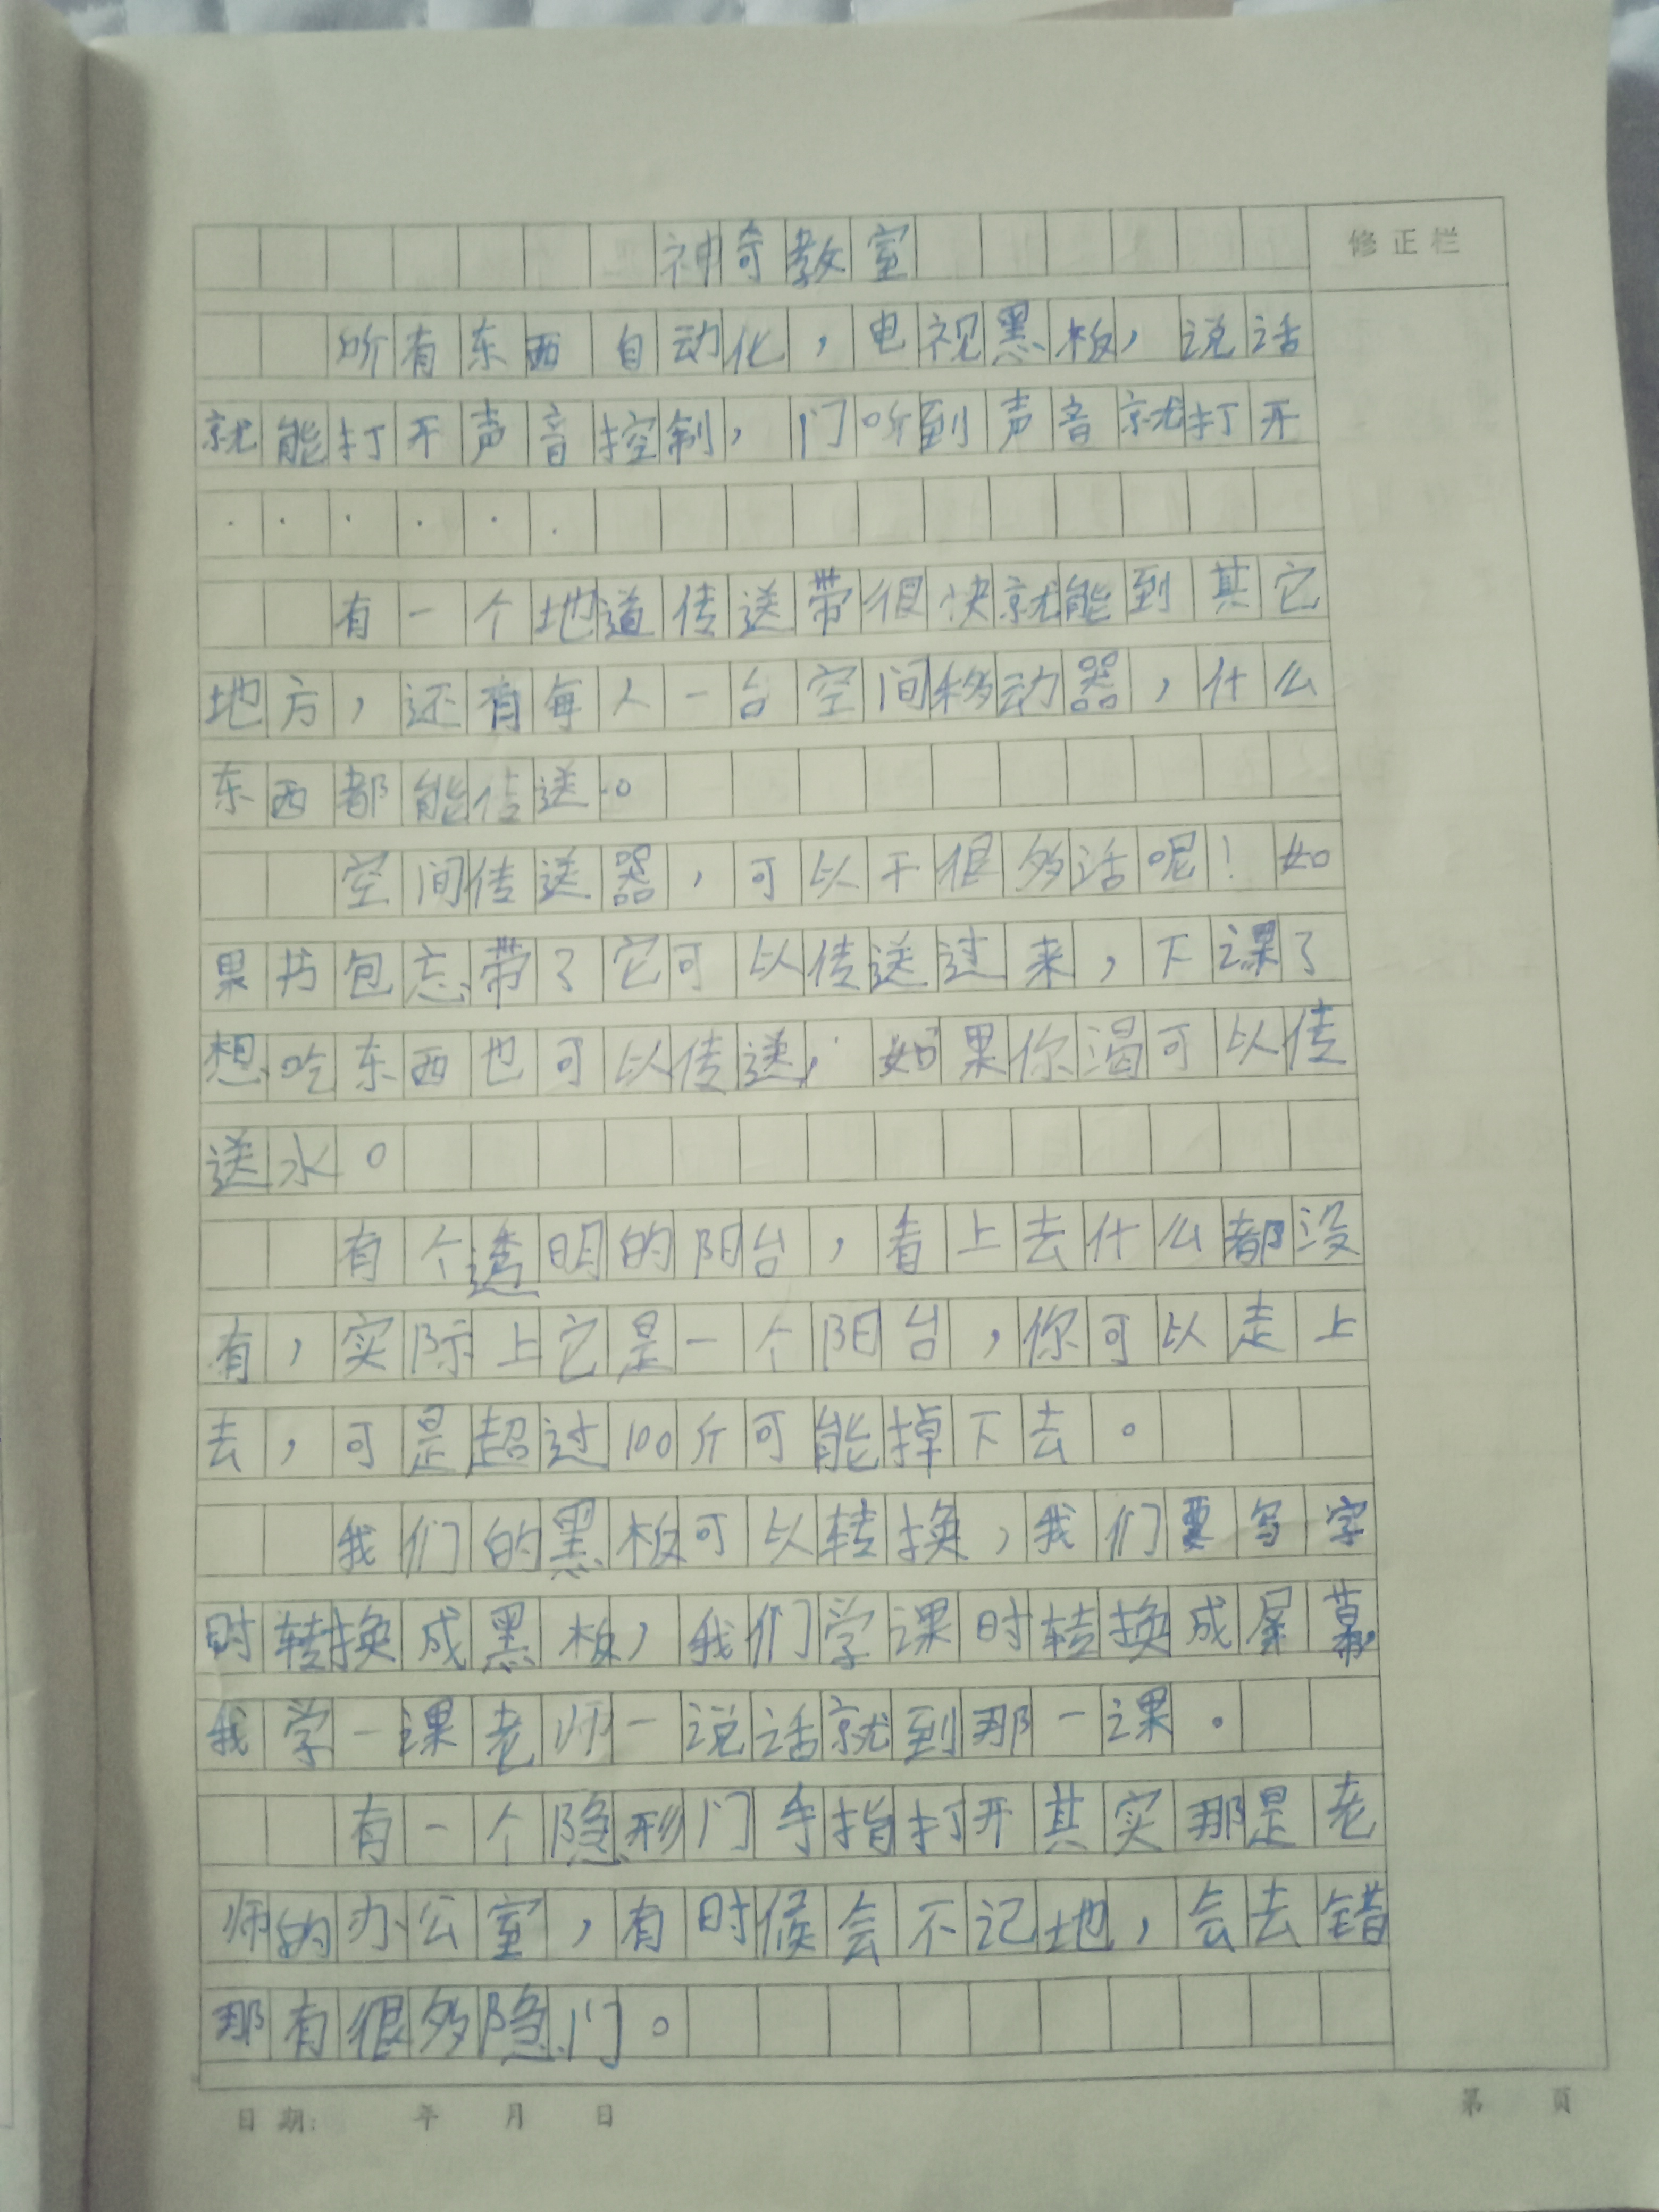 神奇教室
修正栏
所有东西自动化，电视黑板，说话
就能打开声音控制，门听到声音就打开
······
有一个地道传送带很快就能到其它
地方，还有每人一台空间移动器，什么
东西都能传送。
空间传送器，可以干很多活呢！如
果书包忘带了它可以传送过来，下课了
想吃东西也可以传送，如果你渴可以传
送水。
有个透明的阳台，看上去什么都没
有，实际上它是一个阳台，你可以走上
去，可是超过100斤可能掉下去。
我们的黑板可以转换，我们要写字
时转换成黑板，我们学课时转换成屏幕，
我学一课老师一说话就到那一课。
有一个隐形门手指打开其实那是老
师的办公室，有时候会不记地，会去错
那有很多隐门。
日期： 年 月 日
第 页